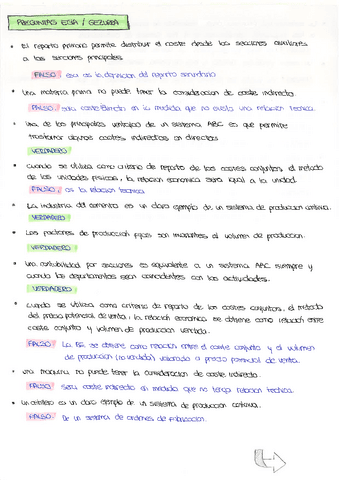 PREGUNTAS EGIA / GEZURRA
• El reparto primario permite distribuir el coste desde las secciones auxiliares
a las secciones principales.
FALSO: esa es la definición del reparto secundario
• Una materia prima no puede tener la consideración de coste indirecto.
FALSO: será coste indirecto en la medida que no exista una relación técnica.
• Una de las principales ventajas de un sistema ABC es que permite
transformar algunos costes indirectos en directos
VERDADERO
• Cuando se utiliza como criterio de reparto de los costes conjuntos, el método
de las unidades físicas, la relación económica será igual a la unidad.
FALSO, es la relación técnica.
• La industria del cemento es un claro ejemplo de un sistema de producción continua.
VERDADERO
• Los factores de producción fijos son invariantes al volumen de producción.
VERDADERO
• Una contabilidad por secciones es equivalente a un sistema ABC siempre y
cuando los departamentos sean coincidentes con las actividades.
VERDADERO
• Cuando se utiliza como criterio de reparto de los costes conjuntos, el método
del precio potencial de venta, la relación económica se obtiene como relación entre
coste conjunto y volumen de producción vendida.
FALSO: La RE se obtiene como relación entre el coste conjunto y el volumen
de producción (no vendida) valorado a precio potencial de venta.
• Una máquina no puede tener la consideración de coste indirecto.
FALSO: Será coste indirecto en medida que no tenga relación técnica.
• Un astillero es un claro ejemplo de un sistema de producción continua.
FALSO. De un sistema de órdenes de fabricación.